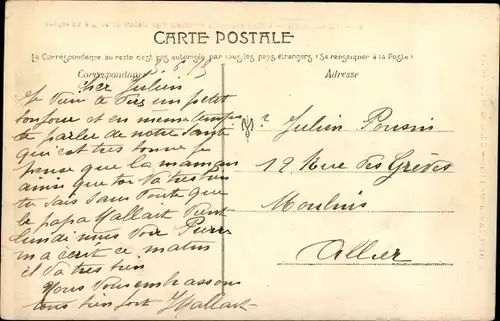 CARTE POSTALE
La Correspondance au recto n'est pas autorisée par tous les pays étrangers (Se renseigner à la Poste)
Correspondance
Adresse
Cher Julien
Je viens te dire un petit
bonjour et en même temps
te parler de notre santé
qui est très bonne je
pense que la maman
ainsi que toi va très bien
tu sais sans doute que
le papa Mallart vient
lundi nous voir Pierre
m'a écrit ce matin
et va très bien
Nous vous embrassons
tous bien fort Mallart
Mr Julien Poussin
12 Rue des Grèves
Moulins
Allier